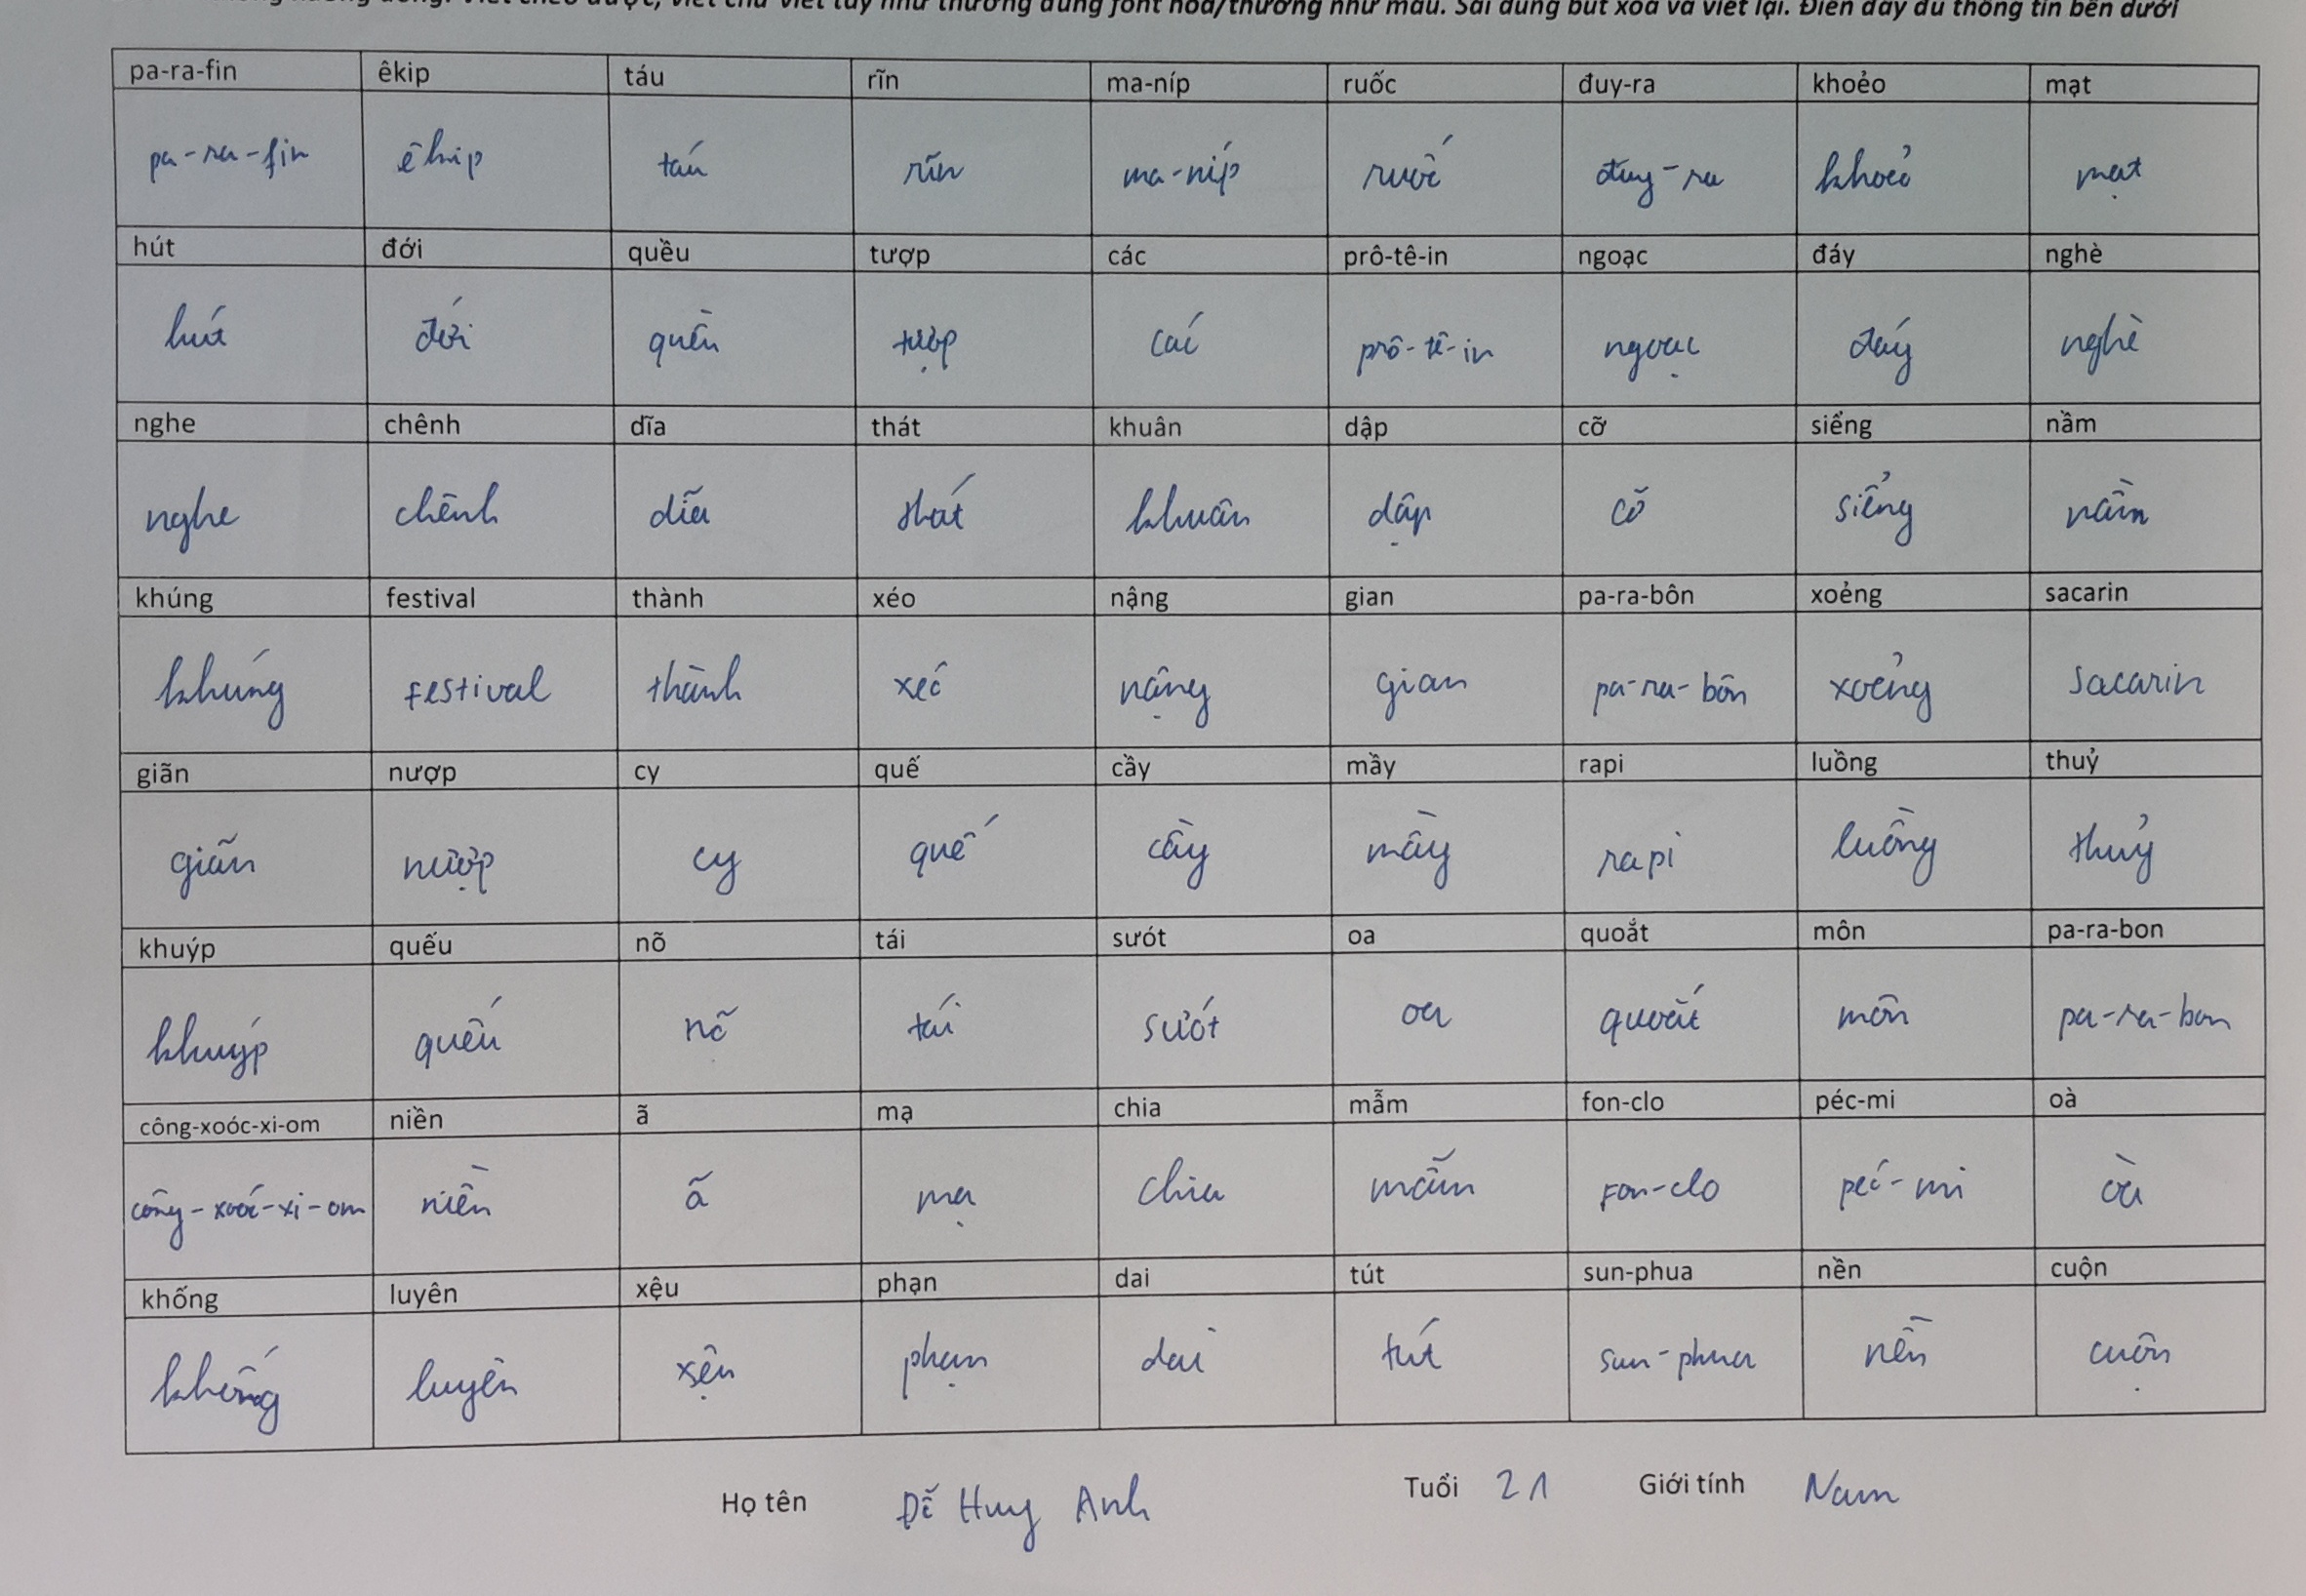 viết theo được, viết chữ viết tay như thường dùng font hoa/thường như mẫu. Sai dùng bút xoá và viết lại. Điền đầy đủ thông tin bên dưới
pa-ra-fin êkip táu rĩn ma-níp ruốc đuy-ra khoẻo mạt
pa-ra-fin êkip táu rĩn ma-níp ruốc đuy-ra khoẻo mạt
hút đới quều tượp các prô-tê-in ngoạc đáy nghè
hút đới quều tượp các prô-tê-in ngoạc đáy nghè
nghe chênh dĩa thát khuân dập cỡ siểng nầm
nghe chênh dĩa thát khuân dập cỡ siểng nầm
khúng festival thành xéo nậng gian pa-ra-bôn xoẻng sacarin
khúng festival thành xéo nậng gian pa-ra-bôn xoẻng sacarin
giãn nượp cy quế cầy mầy rapi luồng thuỷ
giãn nượp cy quế cầy mầy rapi luồng thuỷ
khuýp quếu nõ tái sướt oa quoắt môn pa-ra-bon
khuýp quếu nõ tái sướt oa quoắt môn pa-ra-bon
công-xoóc-xi-om niền ã mạ chia mẫm fon-clo péc-mi oà
công-xoóc-xi-om niền ã mạ chia mẫm fon-clo péc-mi oà
khống luyên xệu phạn dai tút sun-phua nền cuộn
khống luyên xệu phạn dai tút sun-phua nền cuộn
Họ tên Đỗ Huy Anh Tuổi 21 Giới tính Nam